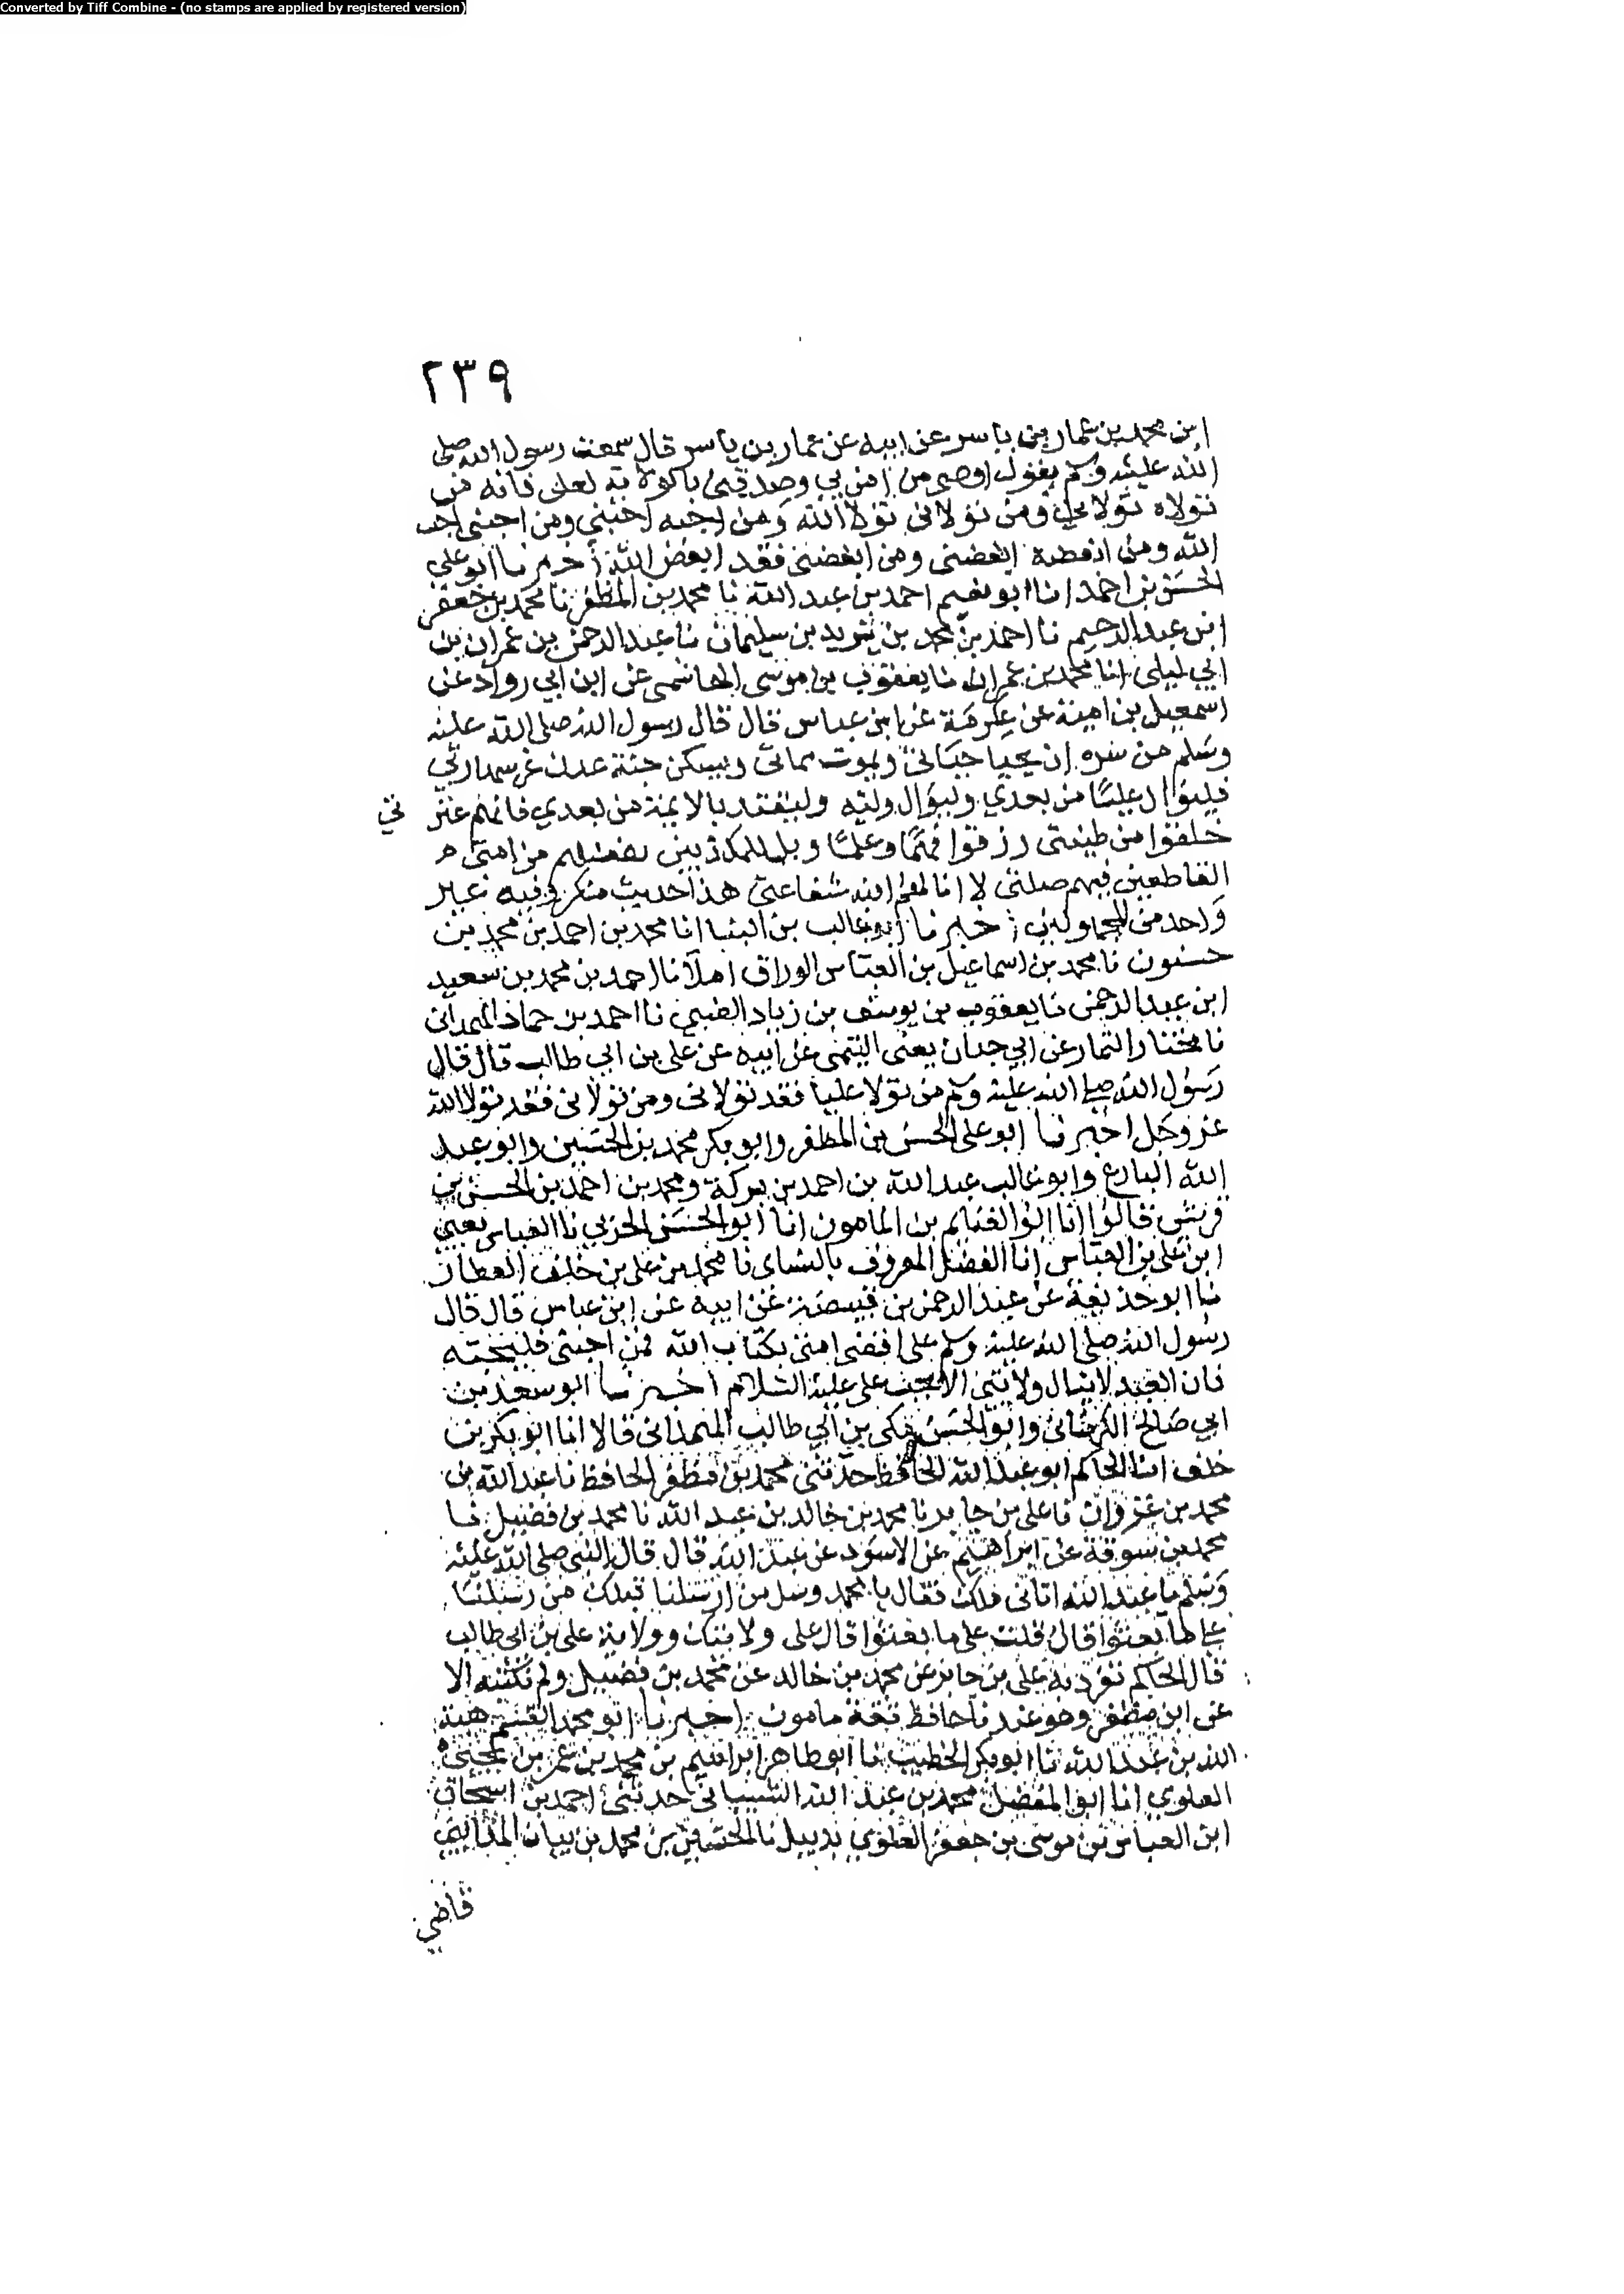 Converted by Tiff Combine - (no stamps are applied by registered version)
٢٣٩
ابن محمد بن عمار بن ياسر عن ابيه عن عمار بن ياسر قال سمعت رسول الله صلى
الله عليه وسلم يقول اوصي من امن بي وصدقني بالولاية لعلي فانه من
تولاه تولاني ومن تولاني تولا الله ومن احبه احبني ومن احبني احب
الله ومن ابغضه ابغضني ومن ابغضني فقد ابغض الله اخبرنا ابو علي
الحسن بن احمد انا ابو نعيم احمد بن عبد الله نا محمد بن المظفر نا محمد بن جعفر
ابن عبد الرحيم نا احمد بن محمد بن يزيد بن سليمان نا عبد الرحمن بن عمران بن
ابي ليلى انا محمد بن عمران نا يعقوب بن موسى الهاشمي عن ابن ابي رواد عن
اسمعيل بن امية عن عكرمة عن ابن عباس قال قال رسول الله صلى الله عليه
وسلم من سره ان يحيا حياتي ويموت مماتي ويسكن جنة عدن غرسها ربي
فليوال عليا من بعدي وليوال وليه وليقتد بالايمة من بعدي فانهم عتر
تي
خلقوا من طينتي رزقوا فهما وعلما ويل للمكذبين بفضلهم من امتي
القاطعين فيهم صلتي لا انالهم الله شفاعتي هذا حديث منكر وفيه غير
واحد من المجهولين اخبرنا ابو غالب بن البنا انا محمد بن احمد بن محمد بن
حسنون نا محمد بن اسماعيل بن العباس الوراق املا نا احمد بن محمد بن سعيد
ابن عبد الرحمن نا يعقوب بن يوسف بن زياد الضبي نا احمد بن حماد الهمداني
نا مختار التمار عن ابي حيان يعني التيمي عن ابيه عن علي بن ابي طالب قال قال
رسول الله صلى الله عليه وسلم من تولا عليا فقد تولاني ومن تولاني فقد تولا الله
عز وجل اخبرنا ابو علي الحسن بن المظفر وابو بكر محمد بن الحسين وابو عبد
الله البارع وابو غالب عبد الله بن احمد بن بركة ومحمد بن احمد بن الحسن بن
قريش قالوا انا ابو الغنايم بن المامون انا ابو الحسن الحربي نا العباس يعني
ابن علي بن العباس انا الفضل المعروف بالنسائي نا محمد بن علي بن خلف العطار
نا ابو حذيفة عن عبد الرحمن بن قبيصة عن ابيه عن ابن عباس قال قال
رسول الله صلى الله عليه وسلم علي اقضى امتي بكتاب الله فمن احبني فليحبه
فان العبد لا ينال ولايتي الا بحب علي عليه السلام اخبرنا ابو سعد بن
ابي صالح الكرماني وابو الحسن مكي بن ابي طالب الهمذاني قالا انا ابو بكر بن
خلف انا الحاكم ابو عبد الله الحافظ حدثني محمد بن مظفر الحافظ نا عبد الله بن
محمد بن غزوان نا علي بن جابر نا محمد بن خالد بن عبد الله نا محمد بن فضيل نا
محمد بن سوقة عن ابراهيم عن الاسود عن عبد الله قال قال النبي صلى الله عليه
وسلم يا عبد الله اتاني ملك فقال يا محمد وسل من ارسلنا قبلك من رسلنا
على ما بعثوا قال قلت على ما بعثوا قال على ولايتك وولاية علي بن ابي طالب
قال الحاكم تفرد به علي بن جابر عن محمد بن خالد عن محمد بن فضيل ولم نكتبه الا
عن ابن مظفر وهو عندنا حافظ ثقة مامون اخبرنا ابو محمد القسم هبة
الله بن عبد الله نا ابو بكر الخطيب نا ابو طاهر ابراهيم بن محمد بن عمر بن يحيى
العلوي انا ابو المفضل محمد بن عبد الله الشيباني حدثني احمد بن اسحاق
ابن العباس بن موسى بن جعفر العلوي بدبيل نا الحسين بن محمد بن بيان المدايني
قاضي